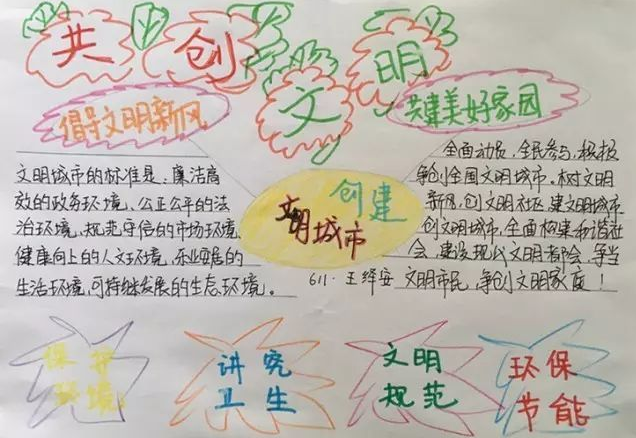 共创文明
倡导文明新风
共建美好家园
文明城市的标准是：廉洁高
效的政务环境、公正公平的法
治环境、规范守信的市场环境、
健康向上的人文环境、乐业安居的
生活环境，可持续发展的生态环境。
创建
文明城市
611.王绎安
全面动员，全民参与，积极
争创全国文明城市。树文明
新风，创文明社区，建文明城市
创文明城市，全面构建和谐社
会，建设现代文明都会，争当
文明市民，争创文明家庭！
保护
环境
讲究
卫生
文明
规范
环保
节能